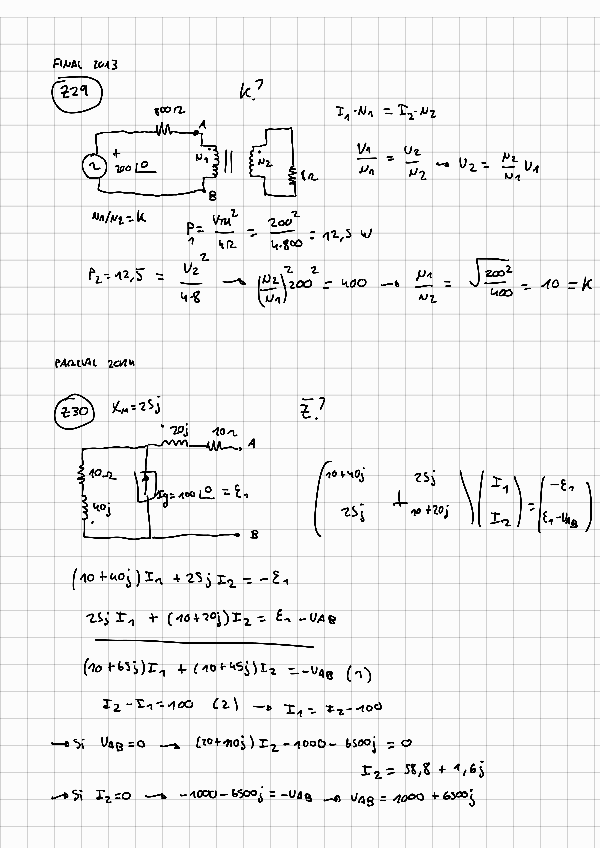 FINAL 2013
Z29
K?
800Ω
A
I₁·N₁ = I₂·N₂
+
200 ∠0
N₁
N₂
8Ω
B
V₁/N₁ = U₂/N₂ → U₂ = N₂/N₁ U₁
N₁/N₂ = K
P₁ = VTH²/4R = 200²/4·800 = 12,5 W
P₂ = 12,5 = U₂²/4·8 → (N₂/N₁)² 200² = 400 → N₁/N₂ = √(200²/400) = 10 = K
PARCIAL 2014
Z30
Xₘ = 25j
Z̄?
20j
10Ω
A
10Ω
Ig = 100 ∠0 = ε₁
40j
B
(10+40j 25j) (I₁) = (-ε₁)
(25j 10+20j) (I₂) (ε₁-UAB)
(10+40j)I₁ + 25j I₂ = -ε₁
25j I₁ + (10+20j)I₂ = ε₁ - UAB
(10+65j)I₁ + (10+45j)I₂ = -UAB (1)
I₂ - I₁ = 100 (2) → I₁ = I₂ - 100
→ Si UAB = 0 → (20+110j) I₂ - 1000 - 6500j = 0
I₂ = 58,8 + 1,6j
→ Si I₂ = 0 → -1000 - 6500j = -UAB → UAB = 1000 + 6500j